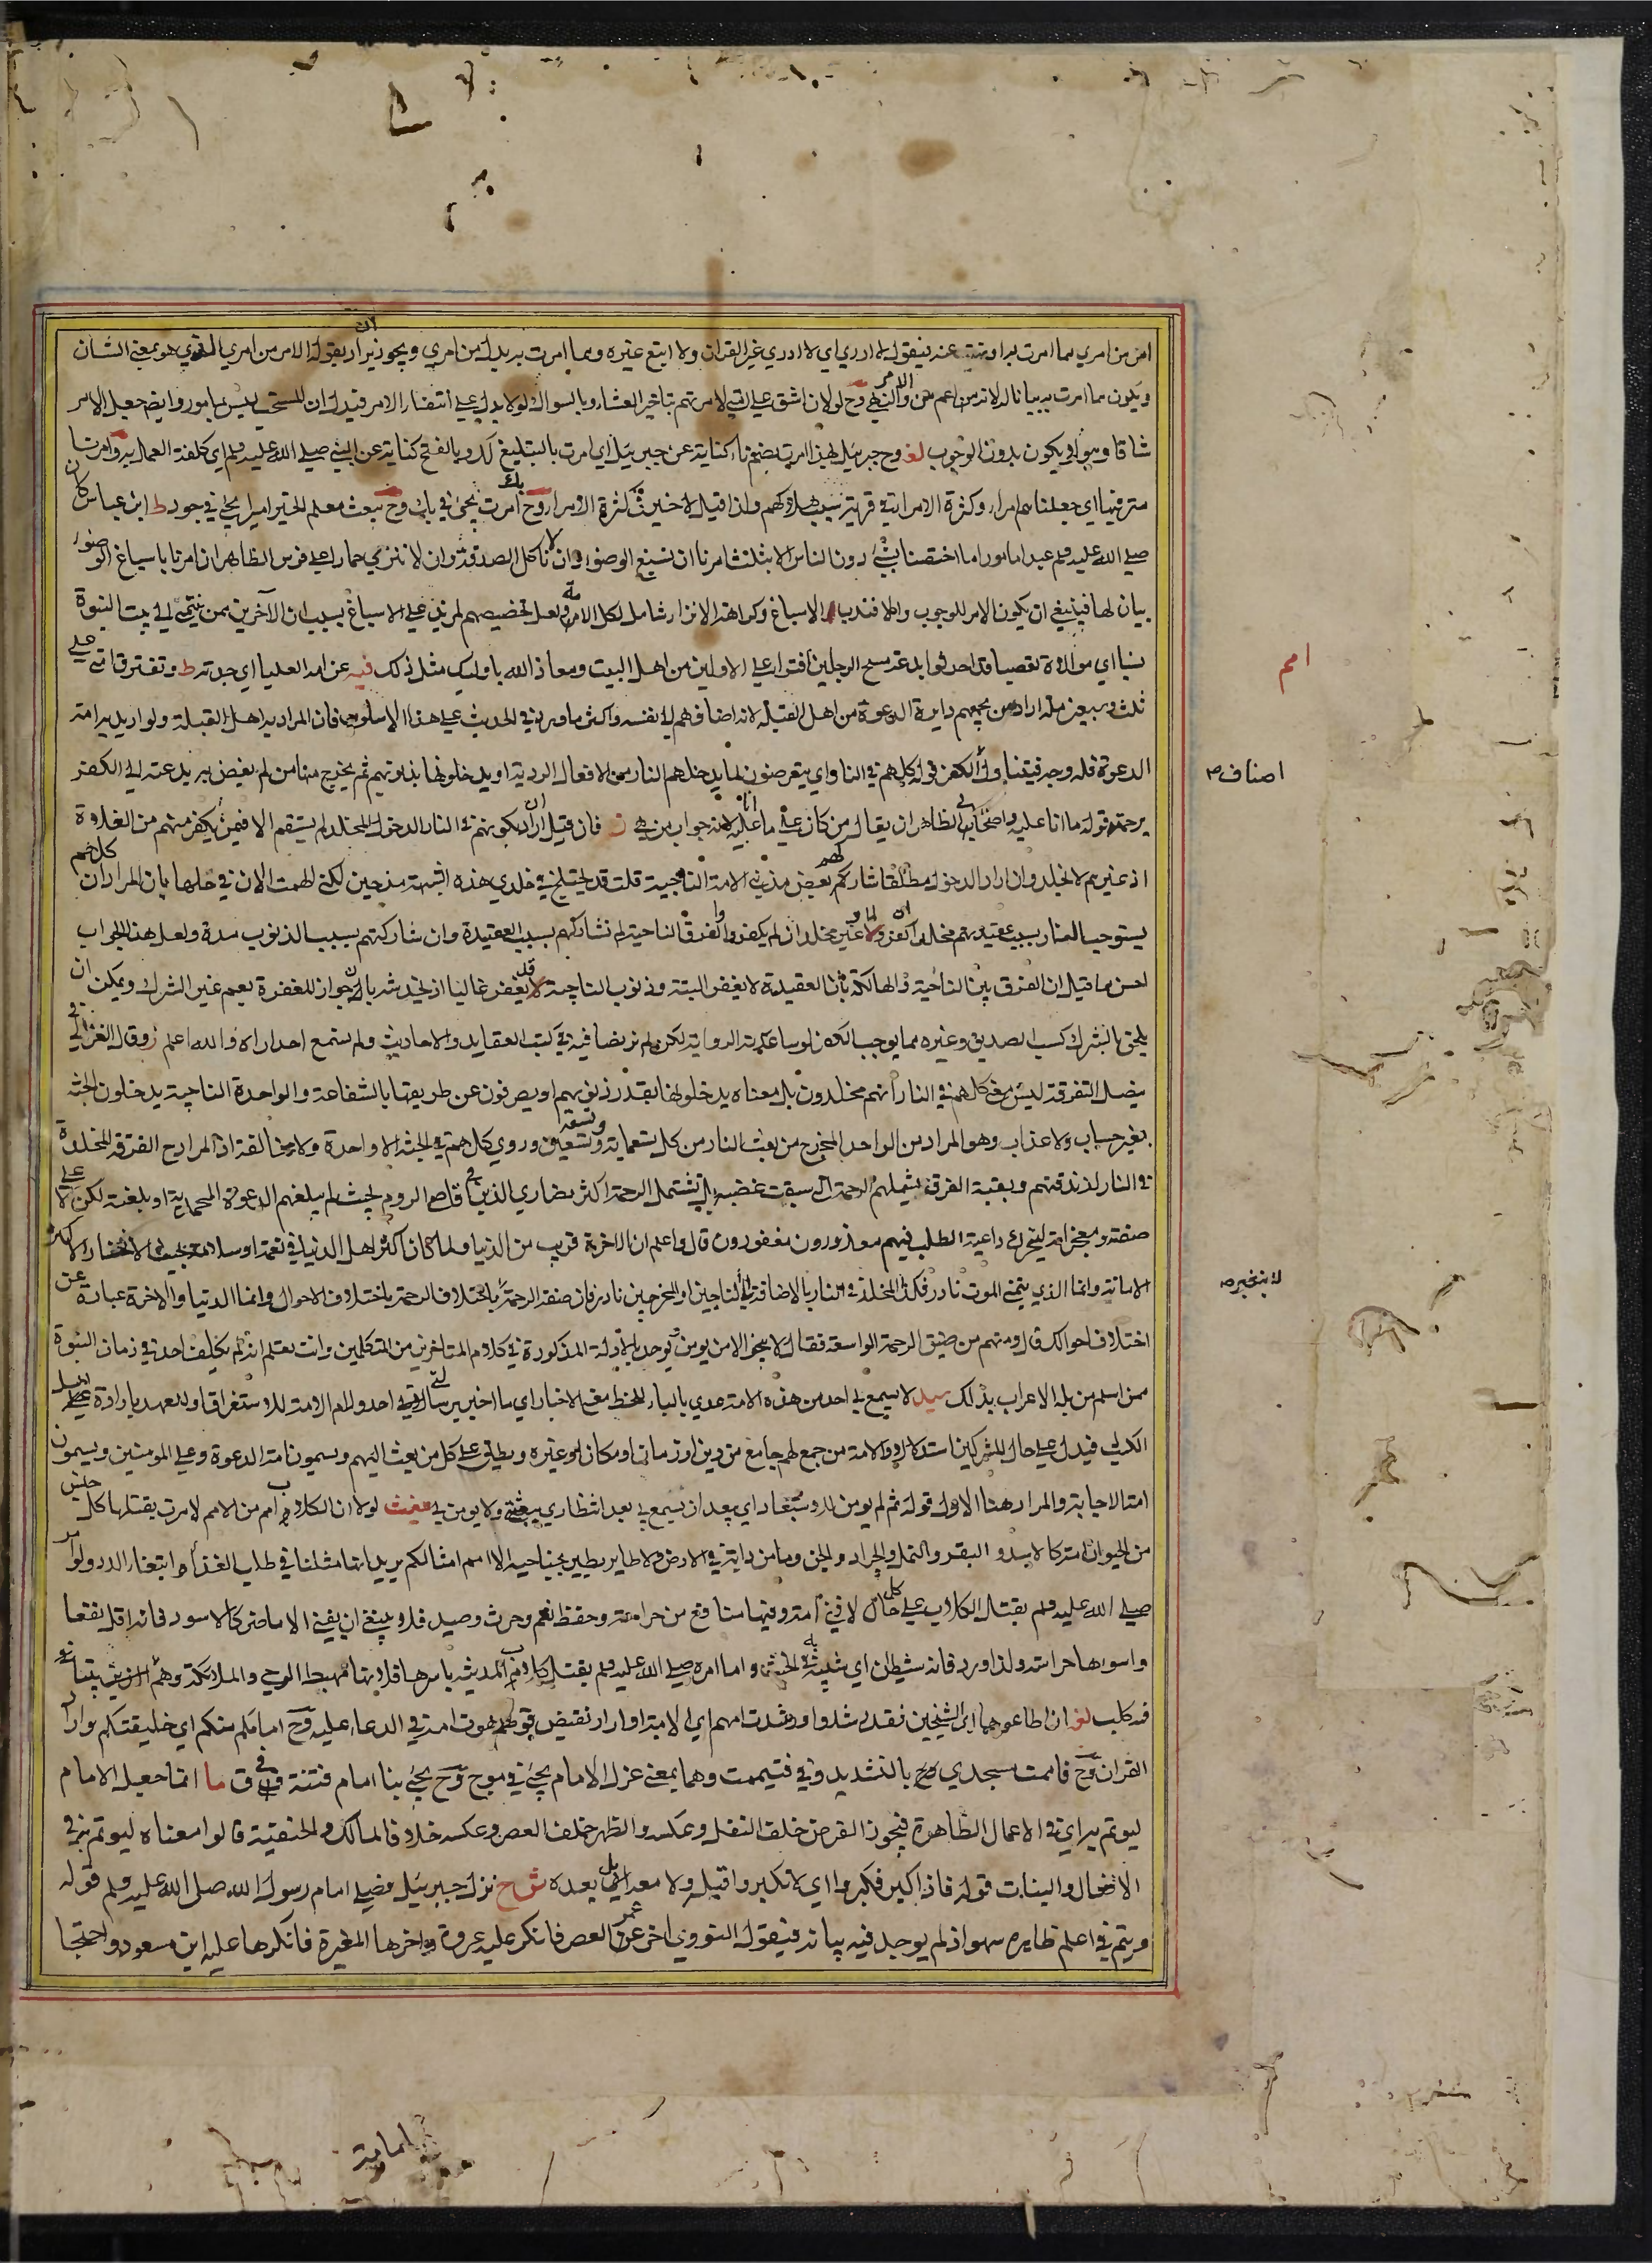 امر من امري مما امرت به او نهيت عنه فيقول لا ادري اي لا ادري غير القران ولا اتبع غيره ومما امرت به بدل من امري ويجوز ان يراد بقوله الامر من امري الذي هو بمعنى الشان
ويكون مما امرت به بيانا له لانه من اعم من الامر والنهي وح لولا ان اشق على امتي لامرتهم بتاخير العشاء وبالسواك لولا يدل على انتفاء الامر فيدل ان المستحب ليس بمامور وايضا جعل الامر
شاقا وهو ان يكون بدون الوجوب لغ وح جبرئيل بهذا امرت بضم تاء كناية عن جبرئيل اي امرت بالتبليغ لك وبالفتح كناية عن النبي صلى الله عليه وسلم اي كلفت العمل به وامرنا
مترفيها اي جعلناهم امراء وكثرة الامراء في قرية سبب هلاكهم ولذا قيل لاخير في كثرة الامراء وح امرت يجيء في باب وح يبعث معلم الخير اميرا يجيء في جود ط ابن عباس كان
صلى الله عليه وسلم عبدا مامورا ما اختصنا بشيء دون الناس الا بثلث امرنا ان نسبغ الوضوء وان لا ناكل الصدقة وان لا ننزي حمارا على فرس الظاهر ان امرنا باسباغ الوضوء
بيان لها فينبغي ان يكون الامر للوجوب والا فندب الاسباغ وكراهة الانزاء شامل لكل الامة ولعل تخصيصهم لمزيد على الاسباغ بسبب ان الآخرين من ينتمي الى بيت النبوة
نسبا اي موالاة تعصبا قد احدثوا بدعة مسح الرجلين افتراء على الاولين من اهل البيت ومعاذ الله باوليك مثل ذلك فيه عن امه العليا اي جدته ط وتفترق امتي على
ثلث وسبعين ملة اراد من تجمعهم دايرة الدعوة من اهل القبلة لانه اضافهم الى نفسه واكثر ما ورد في الحديث على هذا الاسلوب فان المراد به اهل القبلة ولو اريد به امة
الدعوة فله وجه فيتناول الكفر قوله كلهم في النار اي يتعرضون لما يدخلهم النار من الافعال الردية او يدخلونها بذنوبهم ثم يخرج منها من لم يفض به بدعته الى الكفر
برحمته قوله ما انا عليه واصحابي الظاهر ان يقال من كان على ما انا عليه لانه جواب من هي ن فان قيل ان اراد بكونهم في النار الدخول المخلد لم يستقم الا فيمن يكفر منهم من الغلاة
اذ غيرهم لا يخلد وان اراد الدخول مطلقا شاركهم بعض مذنبي الامة الناجية قلت قد يختلج في خلدي هذه الشبهة منذ حين لكني الهمت الان في حلها بان المراد ان كلهم
يستوجب النار بسبب عقيدتهم مخلدا ان كفروا وغير مخلد ان لم يكفروا والفرق الناجية لم تشاركهم بسبب العقيدة وان شاركتهم بسبب الذنوب مدة ولعل هذا الجواب
احسن مما قيل ان الفرق بين الناجية والهالكة بان العقيدة لا يغفر البتة وذنوب الناجية قد يغفر غالبا اذ يخدشه بان جواز المغفرة يعم غير الشرك ويمكن ان
يلحق بالشرك كسب الصديق وغيره مما يوجب الكفر لو ساعدته الرواية لكن لم نر نصا فيه في كتب العقايد والاحاديث ولم نسمع احدا رواه والله اعلم ز وقال الغزالي في
فيصل التفرقة ليس معنى كلهم في النار انهم مخلدون بل معناه يدخلونها بقدر ذنوبهم او يصرفون عن طريقها بالشفاعة والواحدة الناجية يدخلون الجنة
بغير حساب ولا عذاب وهو المراد من الواحد المخرج من بعث النار من كل تسعماية وتسعة وتسعين وروي كلهم في الجنة الا واحدة ولا مخالفة اذ المراد ح الفرقة المخلدة
في النار لزندقتهم وبقية الفرق يشملهم الرحمة التي سبقت غضبه بل تشتمل الرحمة اكثر نصارى الذين في اقاصي الروم بحيث لم يبلغهم الدعوة المحمدية او بلغته لكن لا على
صفته ومعجزاته ليتحرك داعية الطلب فيهم معذورون مغفورون قال واعلم ان الاخرة قريب من الدنيا ولما كان اكثر اهل الدنيا في نعمة او سلامة بحيث لو خير لاختار الا كثر
الاماتة وانما الذي يتمنى الموت نادر فكذا المخلد في النار بالاضافة الى الناجين او المخرجين نادر فان صفة الرحمة لا تختلف الرحمة باختلاف الاحوال وانما الدنيا والاخرة عبارة عن
اختلاف احوالك قال ومنهم من ضيق الرحمة الواسعة فقال لا ينجو الامن يومن ويوحد بالادلة المذكورة في كلام المتاخرين من المتكلمين وانت تعلم انه لم يكلف احد في زمان النبوة
ممن اسلم من بله الاعراب بذلك سيد لا يسمع بي احد من هذه الامة عدي بالباء للحظ معنى الاخبار اي ما اخبر برسالتي احد ولام الامة للاستغراق او للعهد بارادة اهل
الكتاب فيدل على حال المشركين استدلالا والامة من جمع لهم جامع من دين او زمان او مكان او غيره ويطلق على كل من بعث اليهم ويسمون امة الدعوة وعلى المومنين ويسمون
امة الاجابة والمراد هنا الاول قوله ثم لم يومن للاستبعاد اي يبعد ان يسمع بي بعد انتظاري ببعثتي ولا يومن بي مغيث لولا ان الكلاب امم من الامم لامرت بقتلها كل جنس
من الحيوان امة كالاسد والبقر والنمل والجراد والجن وما من دابة في الارض ولا طاير يطير بجناحيه الا امم امثالكم يريد انها مثلنا في طلب الغذاء وابتغاء الدر ولو امر
صلى الله عليه وسلم بقتل الكلاب على كل حال لا فني امة وفيها منافع من حراسة وحفظ نعم وحرث وصيد فلا ينبغي ان يفنى الا ما ضر كالاسود فانه اقل نفعا
واسوءها حراسة ولذا ورد فانه شيطان اي شبيه في الخبث واما امره صلى الله عليه وسلم بقتل كلاب المدينة باسرها فلانها مهبط الوحي والملائكة وهم لا يدخلون بيتا
فيه كلب لغ ان اطاعوهما اي الشيخين فقد رشدوا ورشدت امهم اي الامة او اراد نقيض قولهم هوت امه في الدعاء عليه وح امامكم منكم اي خليفتكم وارا
القران وح فاممت مسجدي وح بالتشديد وفي فتيممت وهما بمعنى عزل الامام يجيء في موج وح يجيء بنا امام فتنة في ق ما انما جعل الامام
ليوتم به اي في الاعمال الظاهرة فيجوز الفرض خلف النفل وعكسه والظهر خلف العصر وعكسه خلافا لمالك والحنفية قالوا معناه ليوتم به في
الافعال والنيات قوله فاذا كبر فكبروا اي لا تكبروا قبله ولا معه بل بعده ش ح نزل جبرئيل فصلى امام رسول الله صلى الله عليه وسلم قوله
ويتم في اعلم ظاهره سهو اذ لم يوجد فيه بيانه فيقول النووي اخر عمر العصر فانكر عليه عروة واخرها المغيرة فانكرها عليه ابن مسعود واحتجا
امم
اصناف
لو خير
امامة